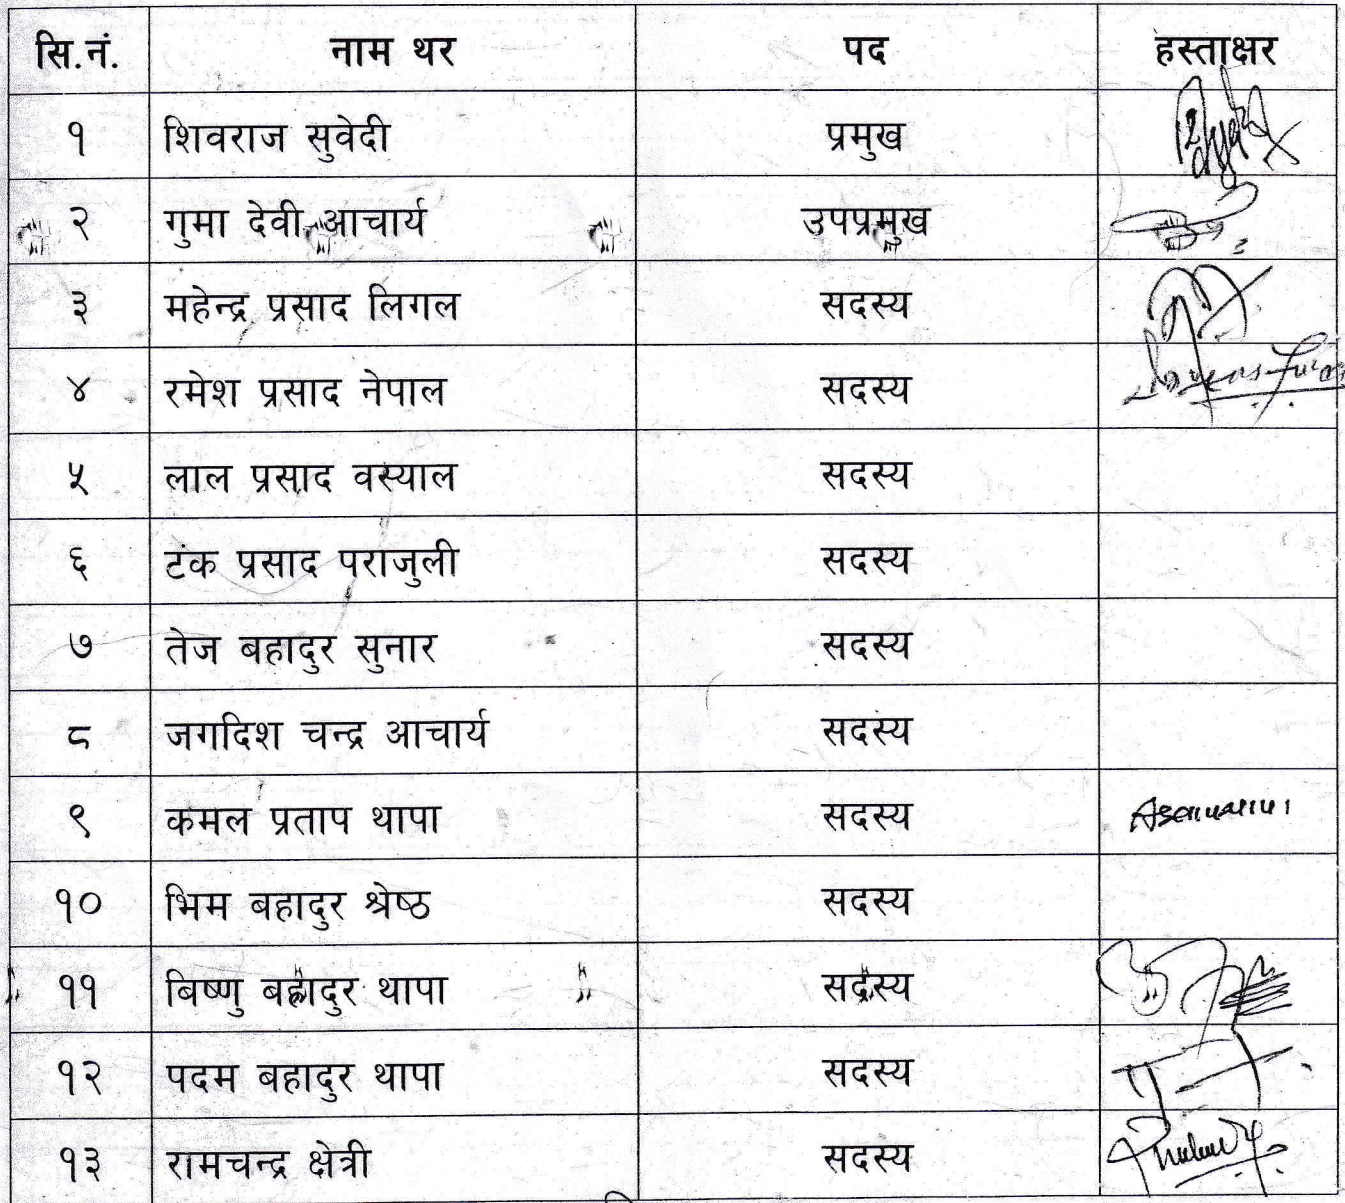 सि.नं. नाम थर पद हस्ताक्षर
१ शिवराज सुवेदी प्रमुख
२ गुमा देवी आचार्य उपप्रमुख
३ महेन्द्र प्रसाद लिगल सदस्य
४ रमेश प्रसाद नेपाल सदस्य
५ लाल प्रसाद वस्याल सदस्य
६ टंक प्रसाद पराजुली सदस्य
७ तेज बहादुर सुनार सदस्य
८ जगदिश चन्द्र आचार्य सदस्य
९ कमल प्रताप थापा सदस्य
१० भिम बहादुर श्रेष्ठ सदस्य
११ बिष्णु बहादुर थापा सदस्य
१२ पदम बहादुर थापा सदस्य
१३ रामचन्द्र क्षेत्री सदस्य